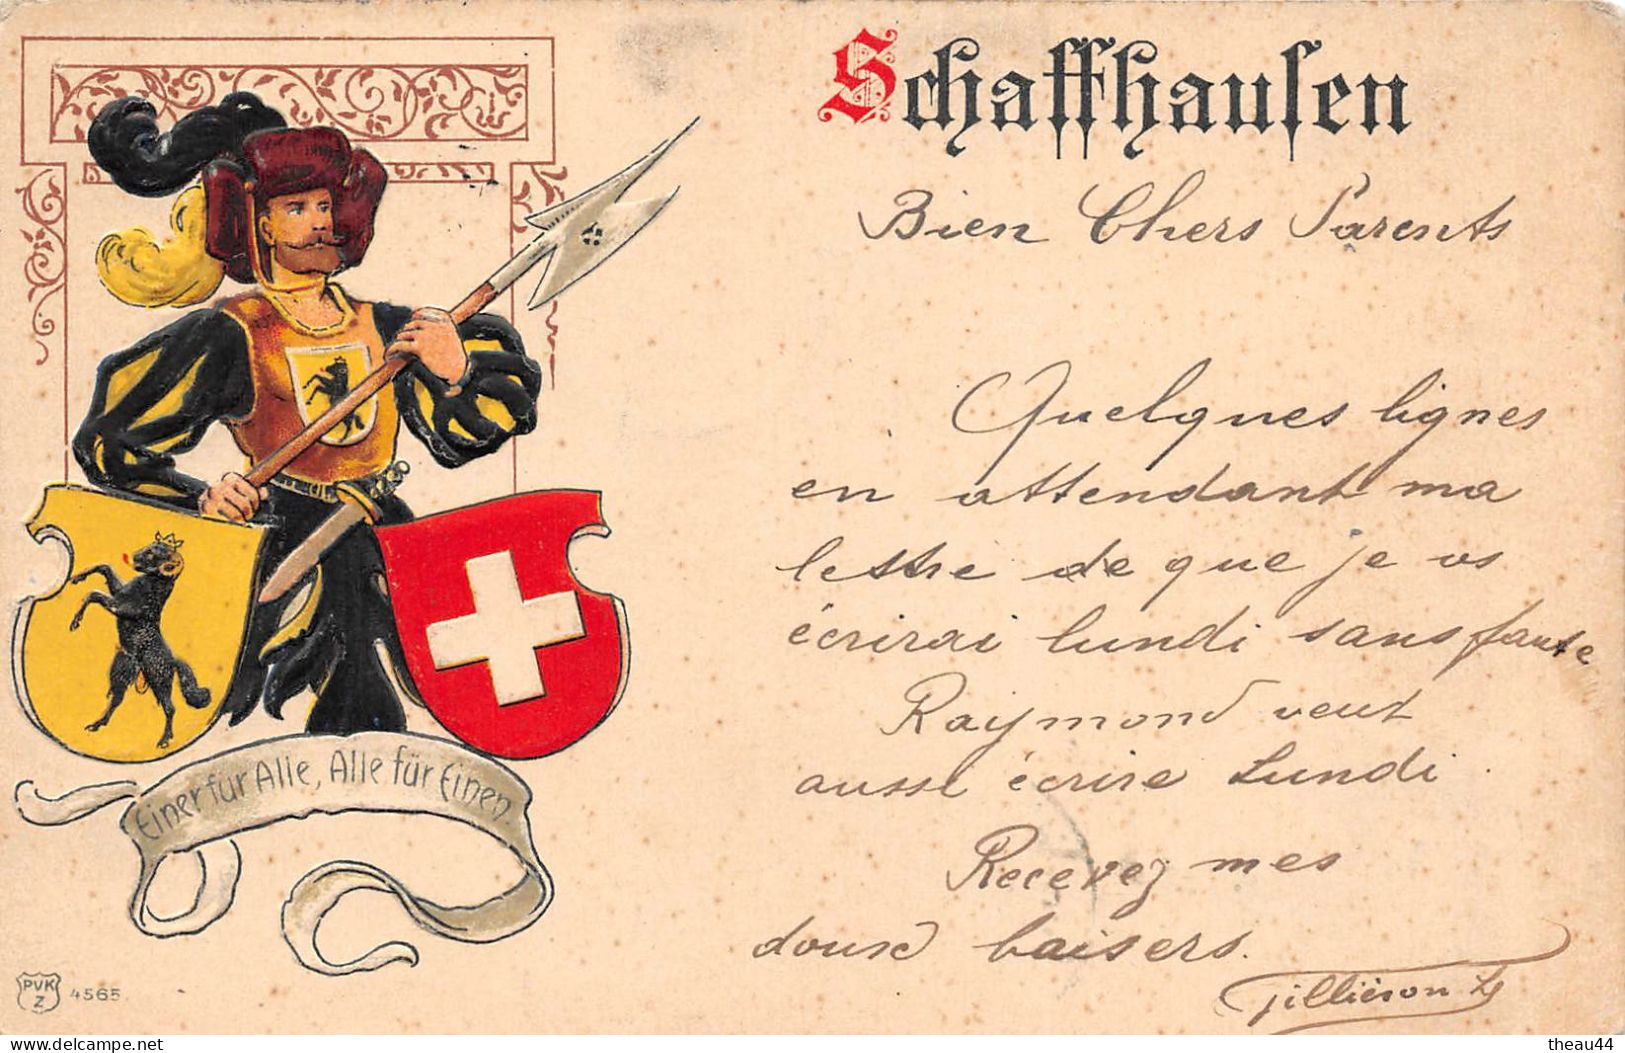 Schaffhausen
Bien Chers Parents
Quelques lignes
en attendant ma
lettre de que je vs
écrirai lundi sans faute
Raymond veut
aussi écrire Lundi.
Recevez mes
doux baisers.
Gilliéron
Einer für Alle, Alle für Einen.
PVK
Z
4565
delcampe.net
theau44